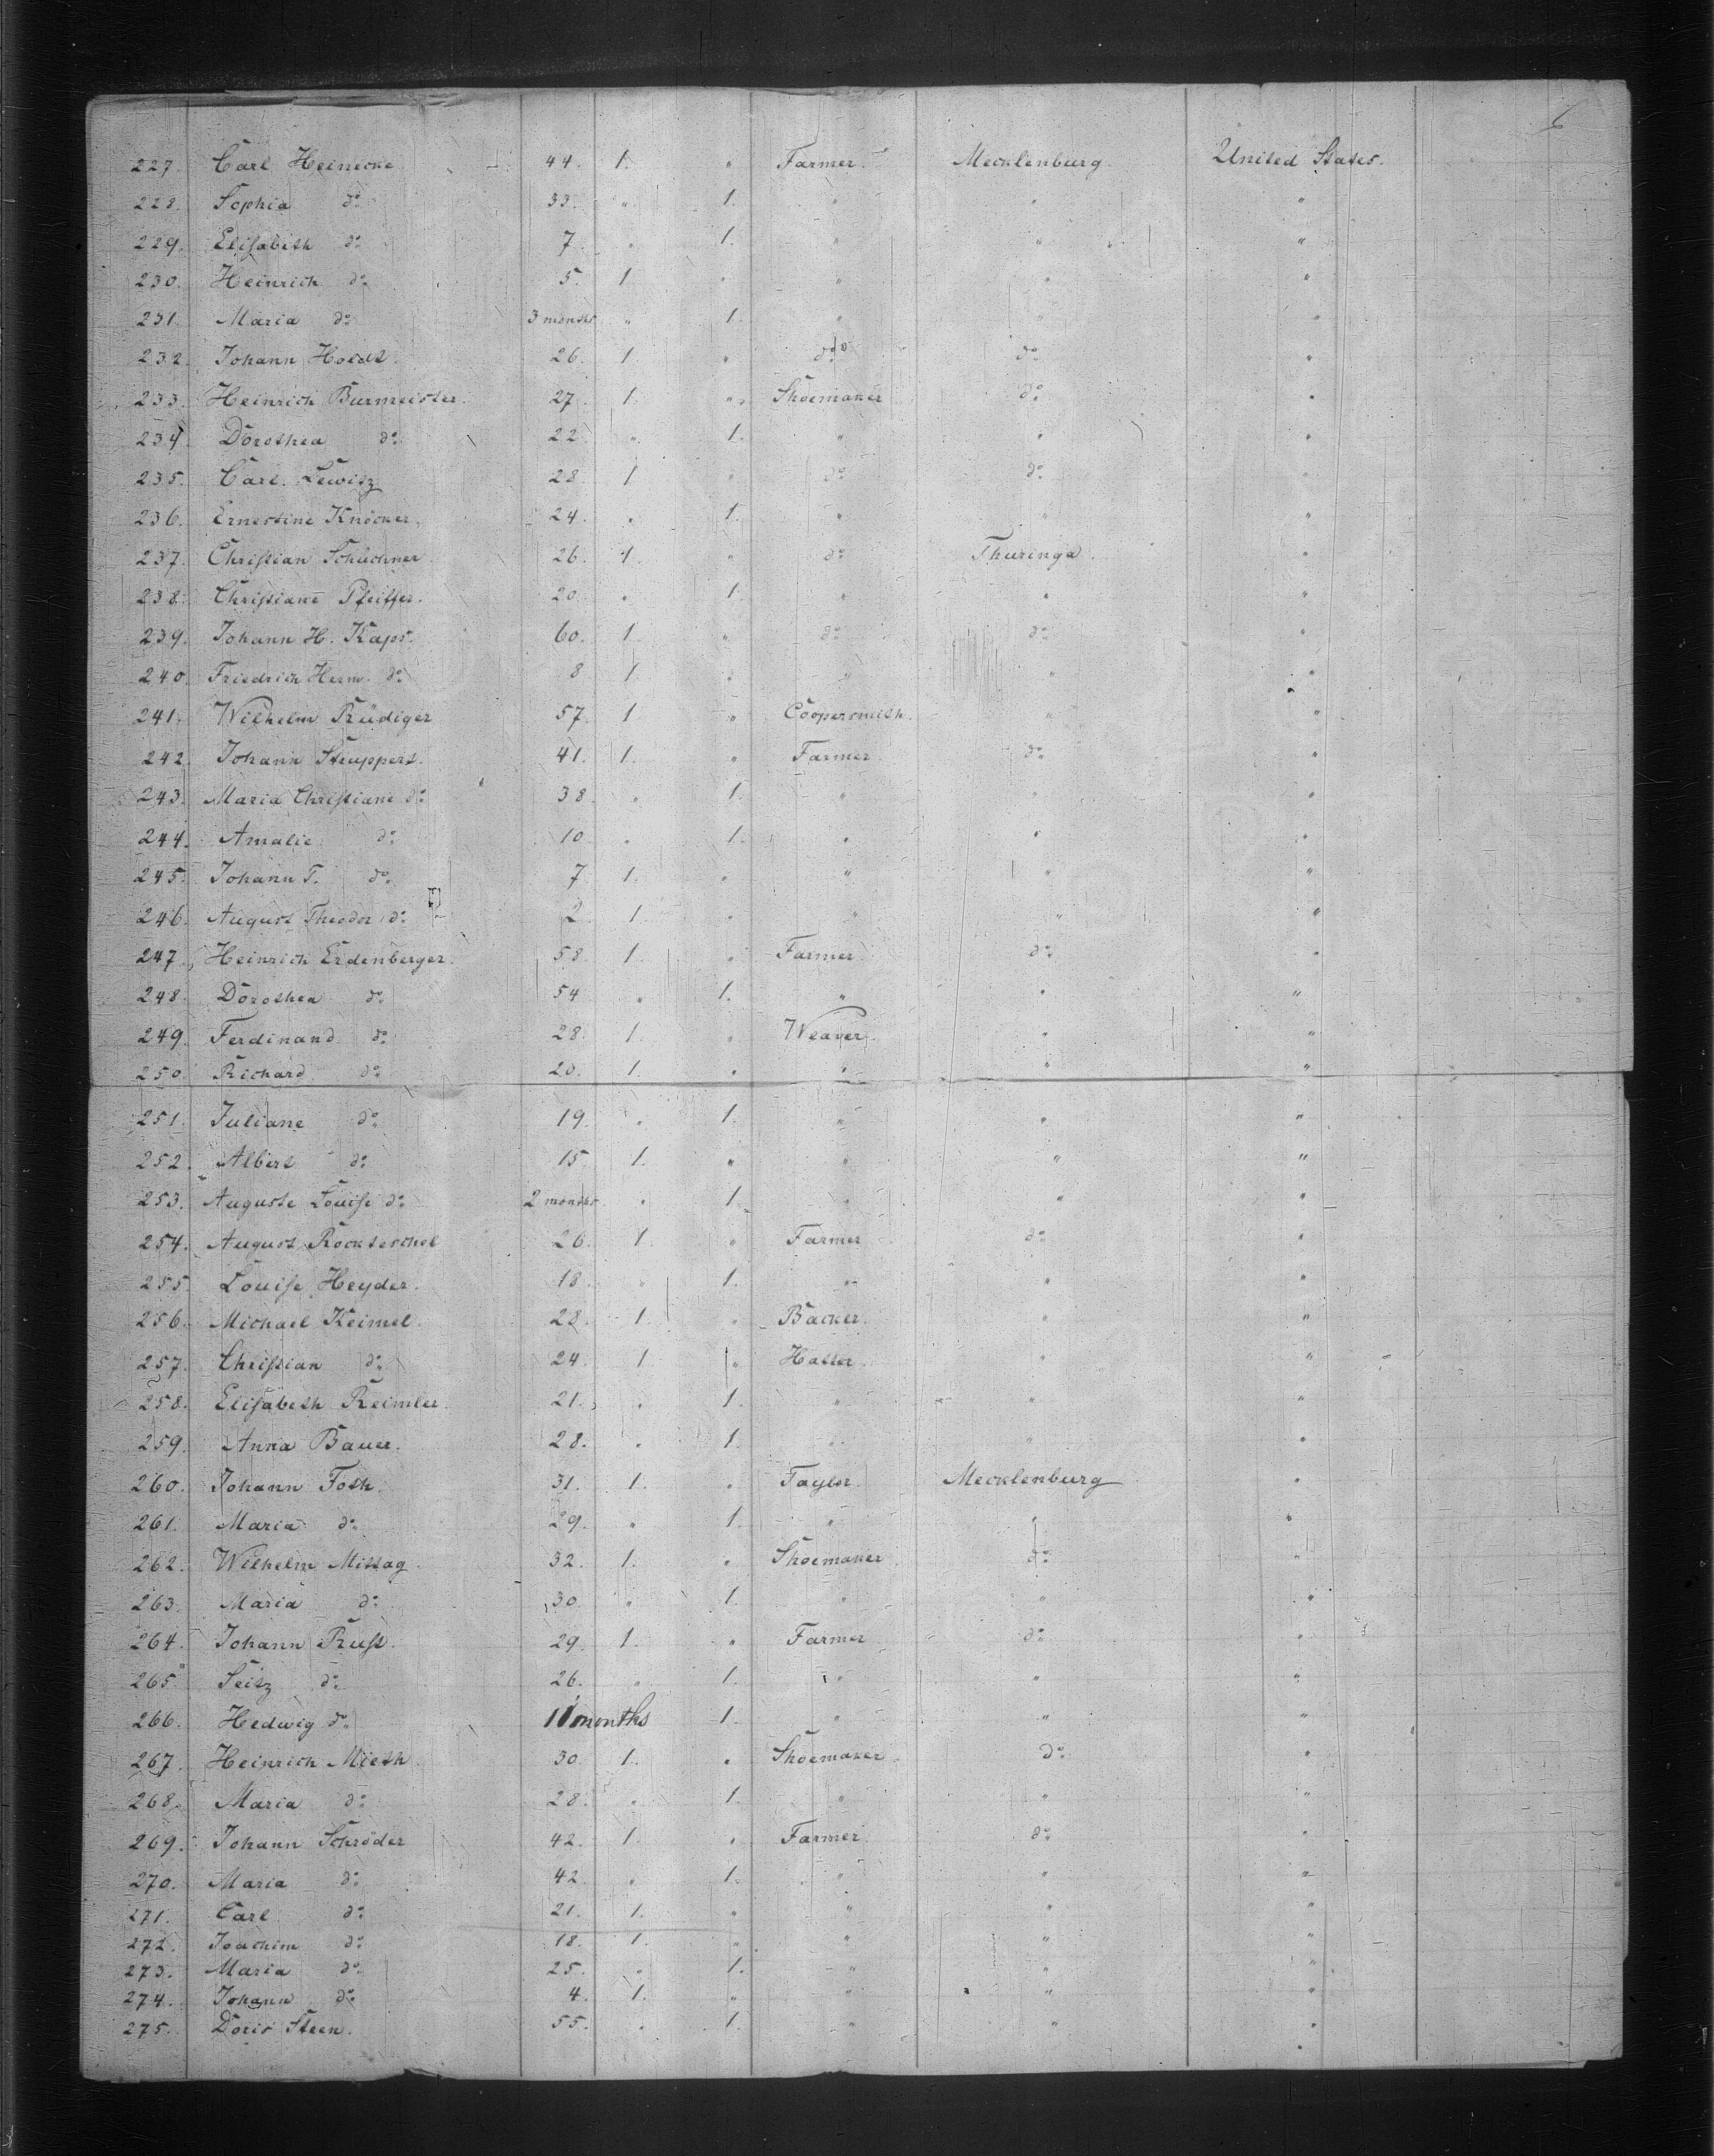 227. Carl Heinecke 44. 1. " Farmer. Mecklenburg. United States.
228. Sophia do 33. " 1. " " "
229. Elisabeth do 7 " 1. " " "
230. Heinrich do 5. 1 " " " "
231. Maria do 3 months " 1. " " "
232. Johann Holdt. 26. 1. " do do "
233. Heinrich Burmeister. 27. 1. " Shoemaker do "
234. Dorothea do 22. " 1. " " "
235. Carl Lewitz 28 1 " do do "
236. Ernestine Knöcker. 24. " 1. " " "
237. Christian Schuchner 26. 1 " do Thuringa. "
238. Christiane Pfeiffer. 20. " 1. " " "
239. Johann H. Kaps. 60. 1. " do do "
240. Friedrich Herm. do 8 1. " " " "
241. Wilhelm Rüdiger 57. 1. " Coopersmith. " "
242. Johann Struppert. 41. 1. " Farmer do "
243. Maria Christiane do 38. " 1. " " "
244. Amalie do 10 " 1. " " "
245. Johann T. do 7 1. " " " "
246. August Theodor do 2 1. " " " "
247. Heinrich Erdenberger. 58. 1. " Farmer do "
248. Dorothea do 54 " 1. " " "
249. Ferdinand do 28. 1. " Weaver. " "
250. Richard do 20. 1. " " " "
251. Juliane do 19. " 1. " " "
252. Albert do 15 1. " " " "
253. Auguste Louise do 2 months " 1. " " "
254. August Rockteschel 26. 1. " Farmer do "
255. Louise Heyder. 18. " 1. " " "
256. Michael Keimel. 28. 1. " Backer. " "
257. Christian do 24. 1. " Hatter. " "
258. Elisabeth Reimler. 21. " 1. " " "
259. Anna Bauer. 28. " 1. " " "
260. Johann Foth. 31. 1. " Taylor. Mecklenburg "
261. Maria do 29. " 1. " " "
262. Wilhelm Mittag. 32. 1. " Shoemaker do "
263. Maria do 30. " 1. " " "
264. Johann Rust. 29. 1. " Farmer do "
265. Seitz do 26. " 1. " " "
266. Hedwig do 11 months 1. " " "
267. Heinrich Mieth. 30. 1. " Shoemaker. do "
268. Maria do 28. " 1. " " "
269. Johann Schröder 42. 1. " Farmer do "
270. Maria do 42. " 1. " " "
271. Carl do 21. 1. " " " "
272. Joachim do 18. 1. " " " "
273. Maria do 25. " 1. " " "
274. Johann do 4. 1. " " " "
275. Doris Steen. 55. " 1. " " "